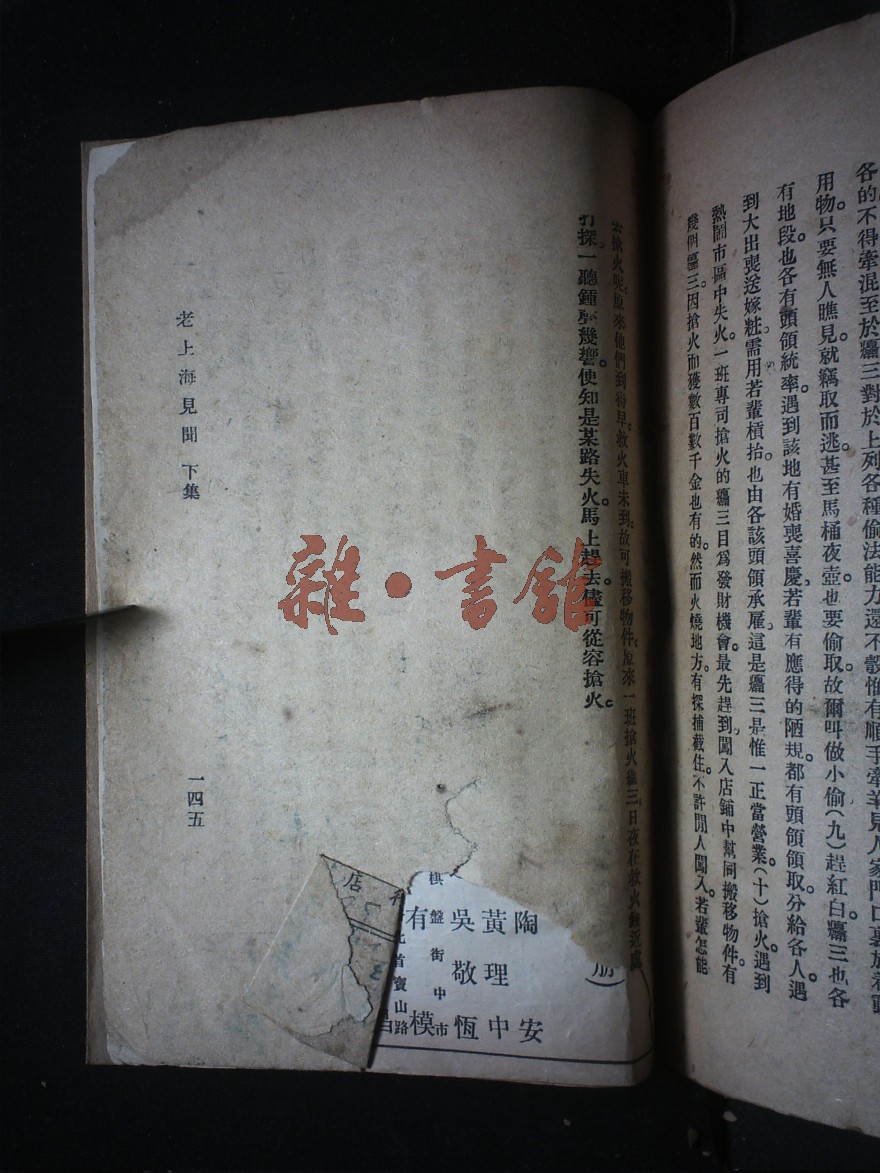 各的不得牽混至於癟三對於上列各種偷法能力還不彀惟有順手牽羊見人家門口裏放着
用物只要無人瞧見。就竊取而逃甚至馬桶夜壺。也要偷取。故爾叫做小偷(九)趕紅白癟三也各
有地段也各有頭領統率。遇到該地有婚喪喜慶。若輩有應得的陋規。都有頭領領取。分給各人遇
到大出喪送嫁粧。需用若輩槓抬。也由各該頭領承雇。這是癟三是惟一正當營業。(十)搶火。遇到
熱鬧市區中失火。一班專司搶火的癟三目為發財機會。最先趕到。闖入店鋪中幫同搬移物件。有
幾個癟三。因搶火而獲數百數千金也有的。然而火燒地方。有探捕截住。不許閒人闖入。若輩怎能
去搶火呢。原來他們到得早。救火車未到。故可搬移物件。原來一班搶火癟三。日夜在救火會近處
打探。一聽鐘聲幾響。便知是某路失火。馬上趕去。儘可從容搶火。
老上海見聞 下集
一四五
陶 安
黃理中
吳敬恆
有模
棋盤街中市
北首寶山路
店
雜·書館